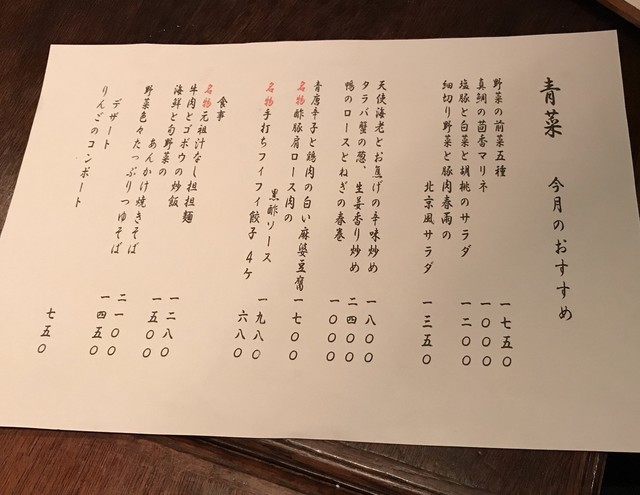 青菜 今月のおすすめ
野菜の前菜五種 一七五〇
真鯛の茴香マリネ 一〇〇〇
塩豚と白菜と胡桃のサラダ 一二〇〇
細切り野菜と豚肉春雨の
北京風サラダ 一三五〇
天使海老とお焦げの辛味炒め 一八〇〇
タラバ蟹の葱、生姜香り炒め 二四〇〇
鴨のロースとねぎの春巻 一〇〇〇
青唐辛子と鶏肉の白い麻婆豆腐 一七〇〇
名物酢豚肩ロース肉の
黒酢ソース 一九八〇
名物手打ちフイフイ餃子 4ケ 六八〇
食事
名物元祖汁なし担担麺 一二八〇
牛肉とゴボウの炒飯 一五〇〇
海鮮と旬野菜の
あんかけ焼きそば 二一〇〇
野菜色々たっぷりつゆそば 一四五〇
デザート
りんごのコンポート 七五〇